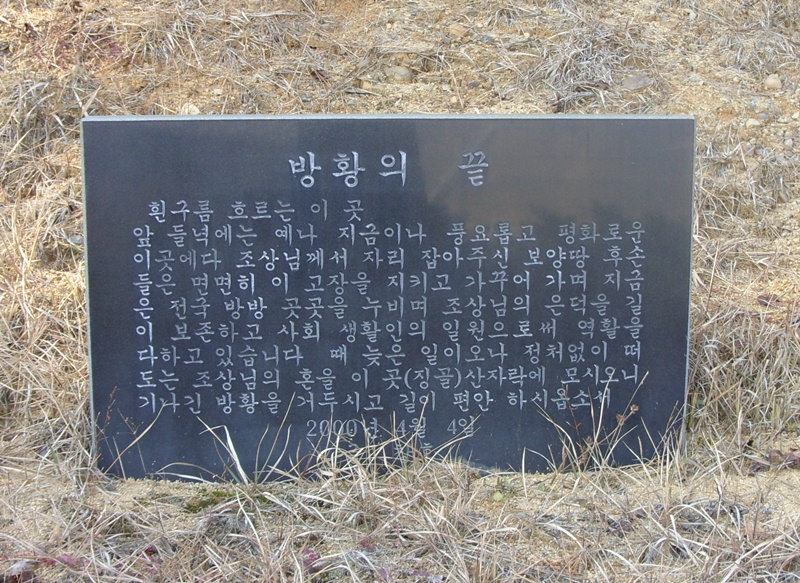 방황의 끝
흰구름 흐르는 이 곳
앞 들녘에는 예나 지금이나 풍요롭고 평화로운
이곳에다 조상님께서 자리 잡아주신 보양땅 후손
들은 면면히 이 고장을 지키고 가꾸어 가며 지금
은 전국 방방 곳곳을 누비며 조상님의 은덕을 길
이 보존하고 사회 생활인의 일원으로써 역활을
다하고 있습니다 때 늦은 일이오나 정처없이 떠
도는 조상님의 혼을 이 곳(징골)산자락에 모시오니
기나긴 방황을 거두시고 길이 편안 하시옵소서
2000년 4월 4일